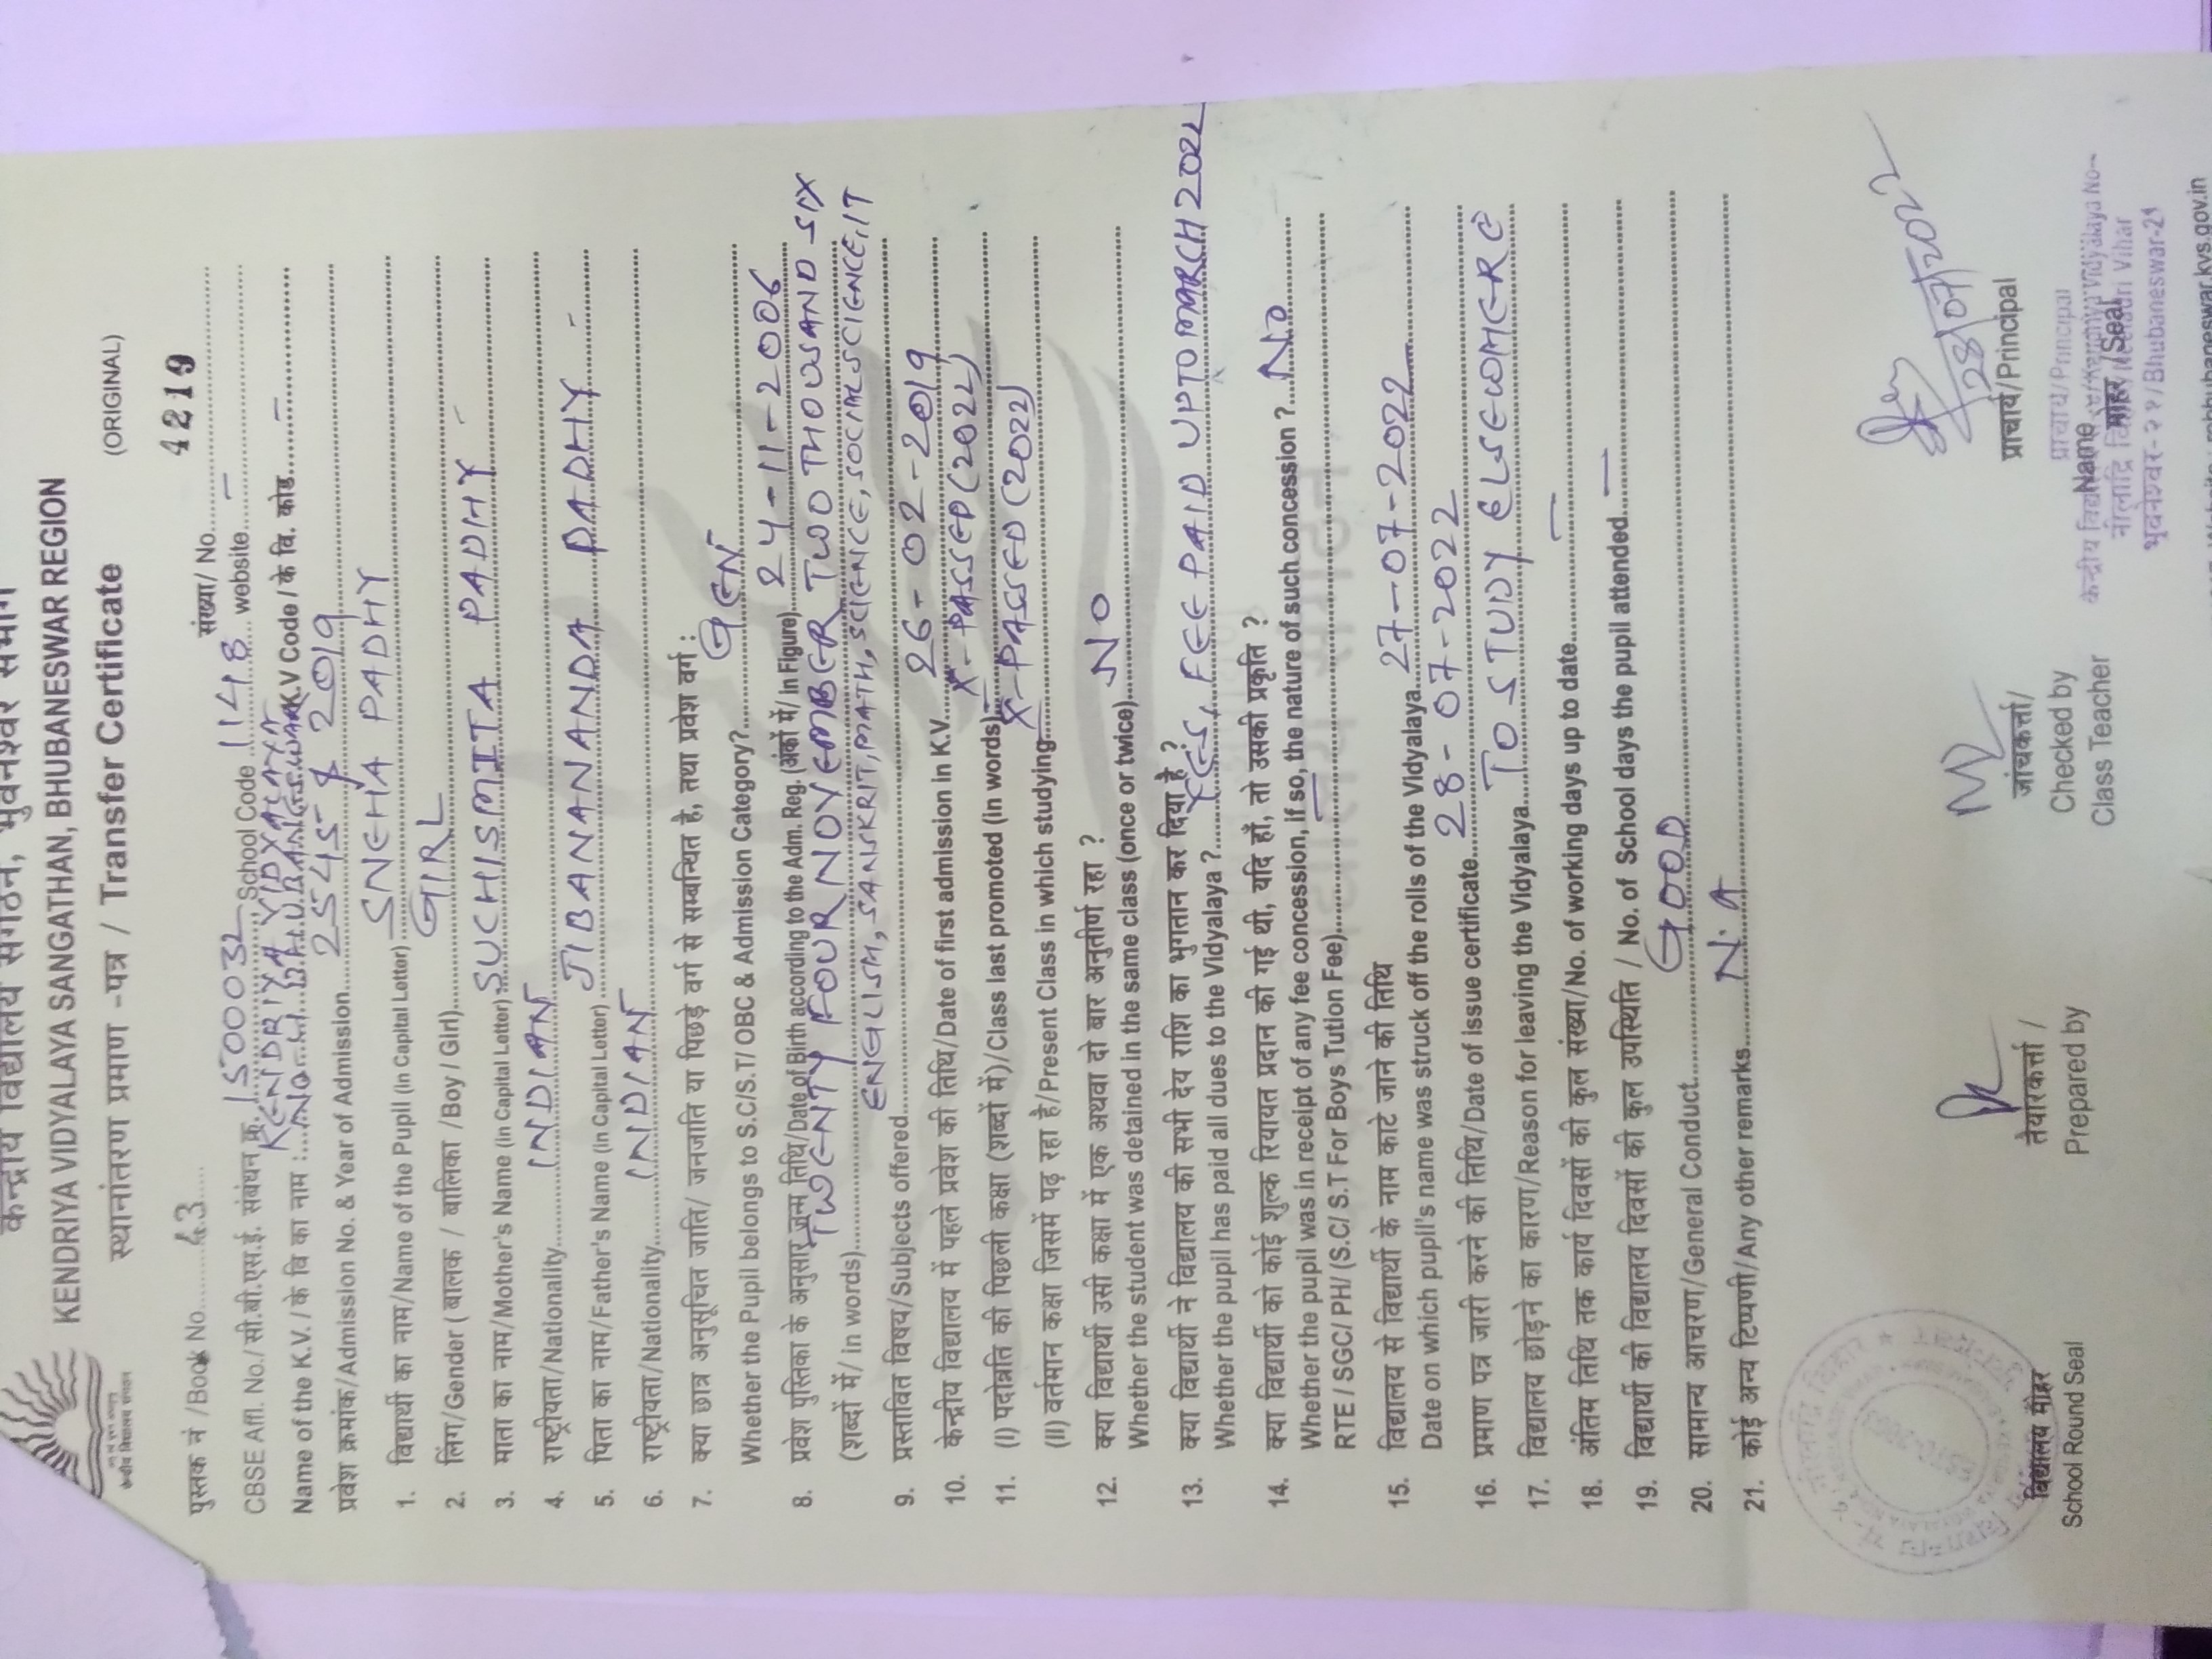 केन्द्रीय विद्यालय संगठन, भुवनेश्वर संभाग
KENDRIYA VIDYALAYA SANGATHAN, BHUBANESWAR REGION
स्थानांतरण प्रमाण -पत्र / Transfer Certificate (ORIGINAL)
केन्द्रीय विद्यालय संगठन
पुस्तक नं /Book No.......... 43 ..... संख्या/ No.......... 4219
CBSE Afl. No./सी.बी.एस.ई. संबंधन क्र. 1500032 School Code 1148 website.... –
Name of the K.V. / के वि का नाम : KENDRIYA VIDYALAYA K.V Code / के वि. कोड..... –
NO-4 BHUBANESWAR
प्रवेश क्रमांक/Admission No. & Year of Admission..... 2545 & 2019
1. विद्यार्थी का नाम/Name of the Pupil (in Capital Letter) SNEHA PADHY
2. लिंग/Gender ( बालक / बालिका /Boy / Girl)..... GIRL
3. माता का नाम/Mother's Name (in Capital Letter) SUCHISMITA PADHY -
4. राष्ट्रीयता/Nationality..... INDIAN
5. पिता का नाम/Father's Name (in Capital Letter) JIBANANANDA PADHY -
6. राष्ट्रीयता/Nationality..... INDIAN
7. क्या छात्र अनुसूचित जाति/ जनजाति या पिछड़े वर्ग से सम्बन्धित है, तथा प्रवेश वर्ग :
Whether the Pupil belongs to S.C/S.T/ OBC & Admission Category?..... GEN
8. प्रवेश पुस्तिका के अनुसार जन्म तिथि/Date of Birth according to the Adm. Reg. (अंकों में/ in Figure) 24-11-2006
(शब्दों में/ in words)..... TWENTY FOUR NOVEMBER TWO THOUSAND SIX
9. प्रस्तवित विषय/Subjects offered..... ENGLISH, SANSKRIT, MATH, SCIENCE, SOCIAL SCIENCE, IT
10. केन्द्रीय विद्यालय में पहले प्रवेश की तिथि/Date of first admission in K.V..... 26-02-2019
11. (I) पदोन्नति की पिछली कक्षा (शब्दों में)/Class last promoted (in words) X - PASSED (2022)
(II) वर्तमान कक्षा जिसमें पढ़ रहा है/Present Class in which studying..... X - PASSED (2022)
12. क्या विद्यार्थी उसी कक्षा में एक अथवा दो बार अनुतीर्ण रहा ?
Whether the student was detained in the same class (once or twice)..... NO
13. क्या विद्यार्थी ने विद्यालय की सभी देय राशि का भुगतान कर दिया है ?
Whether the pupil has paid all dues to the Vidyalaya ?..... YES, FEE PAID UPTO MARCH 2022
14. क्या विद्यार्थी को कोई शुल्क रियायत प्रदान की गई थी, यदि हाँ, तो उसकी प्रकृति ?
Whether the pupil was in receipt of any fee concession, if so, the nature of such concession ?.... NO
RTE / SGC/ PH/ (S.C/ S.T For Boys Tution Fee)..... —
15. विद्यालय से विद्यार्थी के नाम काटे जाने की तिथि
Date on which pupil's name was struck off the rolls of the Vidyalaya..... 27-07-2022
16. प्रमाण पत्र जारी करने की तिथि/Date of issue certificate..... 28-07-2022
17. विद्यालय छोड़ने का कारण/Reason for leaving the Vidyalaya..... TO STUDY ELSEWHERE
18. अंतिम तिथि तक कार्य दिवसों की कुल संख्या/No. of working days up to date..... —
19. विद्यार्थी की विद्यालय दिवसों की कुल उपस्थिति / No. of School days the pupil attended..... —
20. सामान्य आचरण/General Conduct..... GOOD
21. कोई अन्य टिप्पणी/Any other remarks..... N.A
28/07/2022
विद्यालय मोहर तैयारकर्त्ता / जांचकर्त्ता/ प्राचार्य/Principal
School Round Seal Prepared by Checked by
Class Teacher
Name मोहर /Seal
प्राचार्य/Principal
केन्द्रीय विद्यालय Kendriya Vidyalaya No-
नीलाद्रि विहार/Niladri Vihar
भुवनेश्वर-२१/Bhubaneswar-21
ESTD-2003